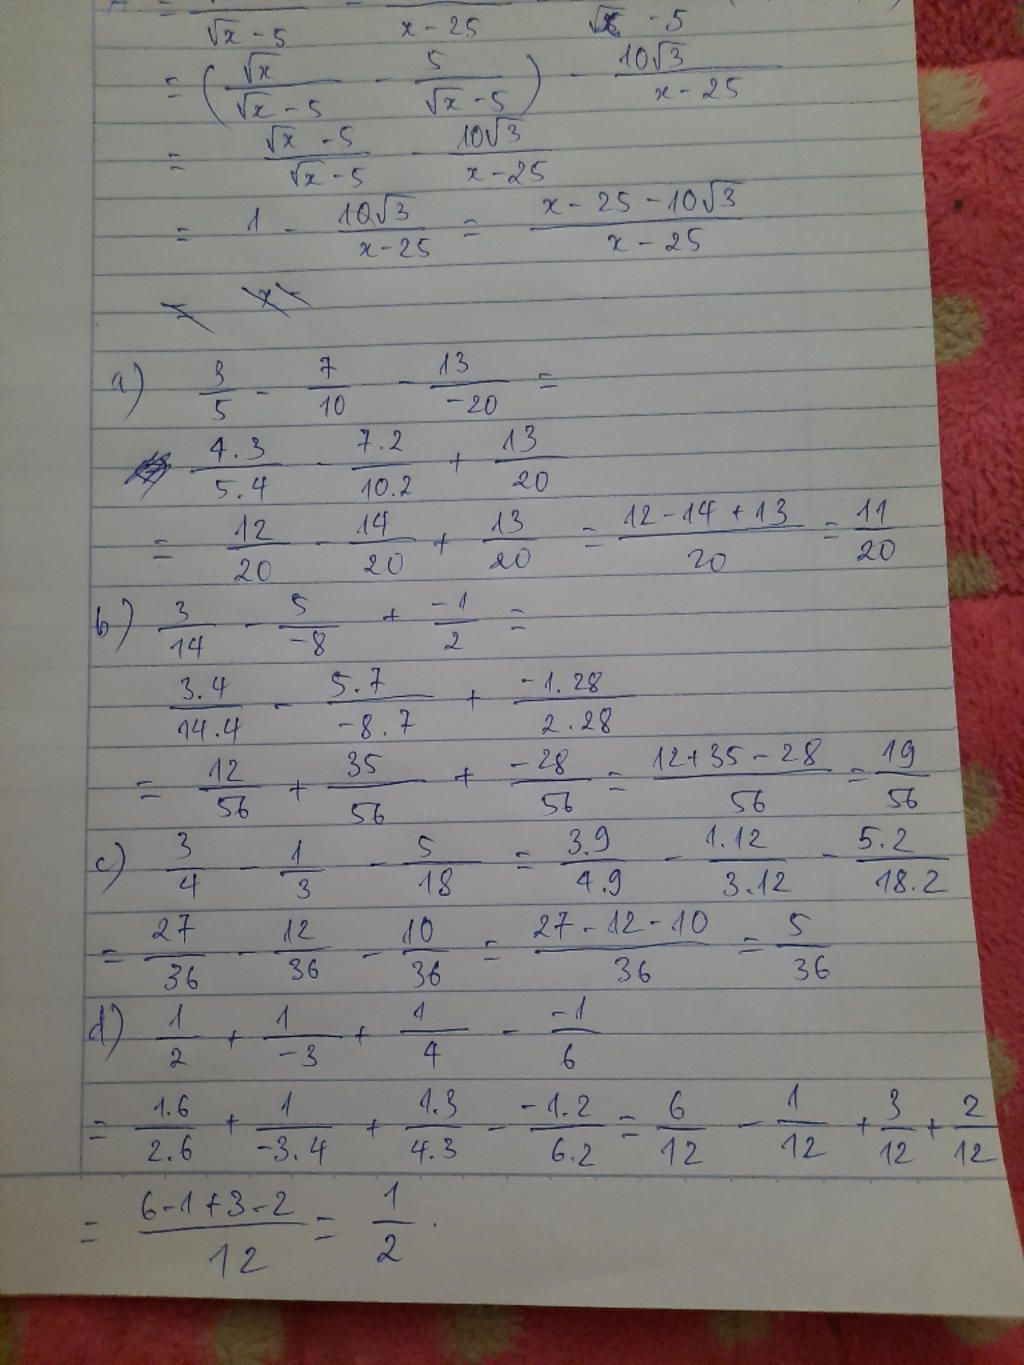 √x - 5 x - 25 √x - 5
= (√x/(√x - 5) - 5/(√x - 5)) - 10√3/(x - 25)
= (√x - 5)/(√x - 5) - 10√3/(x - 25)
= 1 - 10√3/(x - 25) = (x - 25 - 10√3)/(x - 25)
a) 3/5 - 7/10 - 13/-20 =
4.3/5.4 - 7.2/10.2 + 13/20
= 12/20 - 14/20 + 13/20 = (12 - 14 + 13)/20 = 11/20
b) 3/14 - 5/-8 + -1/2 =
3.4/14.4 - 5.7/-8.7 + -1.28/2.28
= 12/56 + 35/56 + -28/56 = (12 + 35 - 28)/56 = 19/56
c) 3/4 - 1/3 - 5/18 = 3.9/4.9 - 1.12/3.12 - 5.2/18.2
= 27/36 - 12/36 - 10/36 = (27 - 12 - 10)/36 = 5/36
d) 1/2 + 1/-3 + 1/4 - -1/6
= 1.6/2.6 + 1/-3.4 + 1.3/4.3 - -1.2/6.2 = 6/12 - 1/12 + 3/12 + 2/12
= (6 - 1 + 3 - 2)/12 = 1/2 .